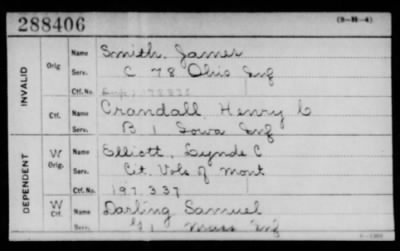 288406
(3-3H-4)
INVALID
Orig Name Smith, James
Serv. C 78 Ohio Inf
Ctf. No.
Ctf. Name Crandall, Henry C
Serv. B 1 Iowa Inf
DEPENDENT
W Orig. Name Elliott, Lynde C
Serv. Cit. Vols of Mont
Ctf. No. 197.337
W Ctf. Name Darling Samuel
Serv. 1 Mass Inf